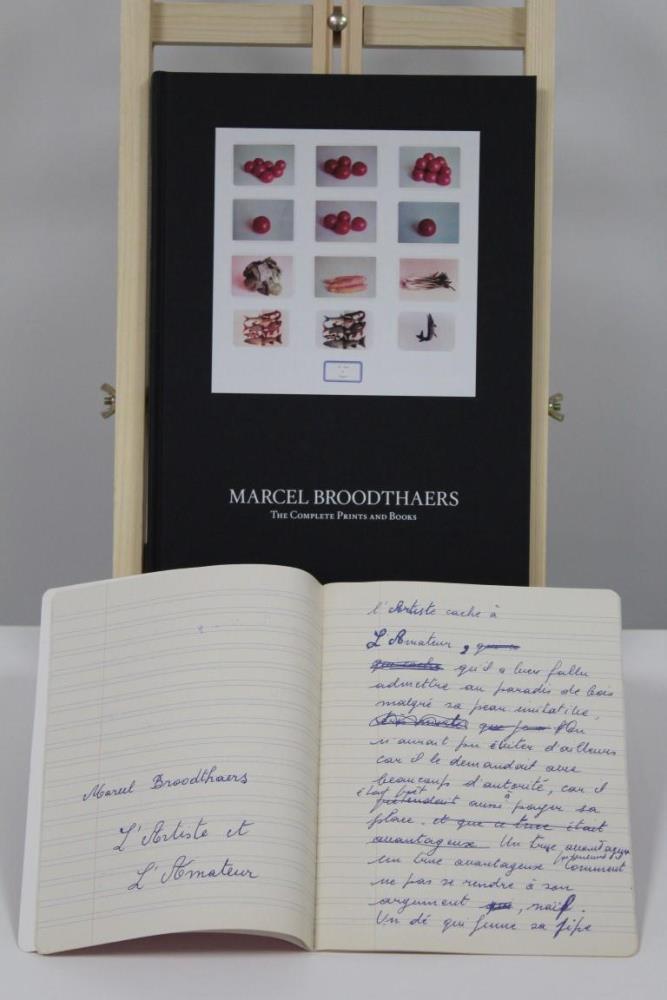 MARCEL BROODTHAERS
THE COMPLETE PRINTS AND BOOKS
Marcel Broodthaers
L'Artiste et
L'Amateur
l'Artiste cache à
L'Amateur,
qui cache qu'il a bien fallu
admettre au paradis de bois
malgré sa peau imitative,
On
n'aurait pu éviter d'ailleurs
car il le demandait avec
beaucoup d'autorité, car il
était prêt à
prétendait aussi payer sa
place. et que ce truc était
avantageux. Un truc avantageux
un truc avantageux Comment
ne pas se rendre à son
argument, naïf.
Un dé qui fume sa pipe